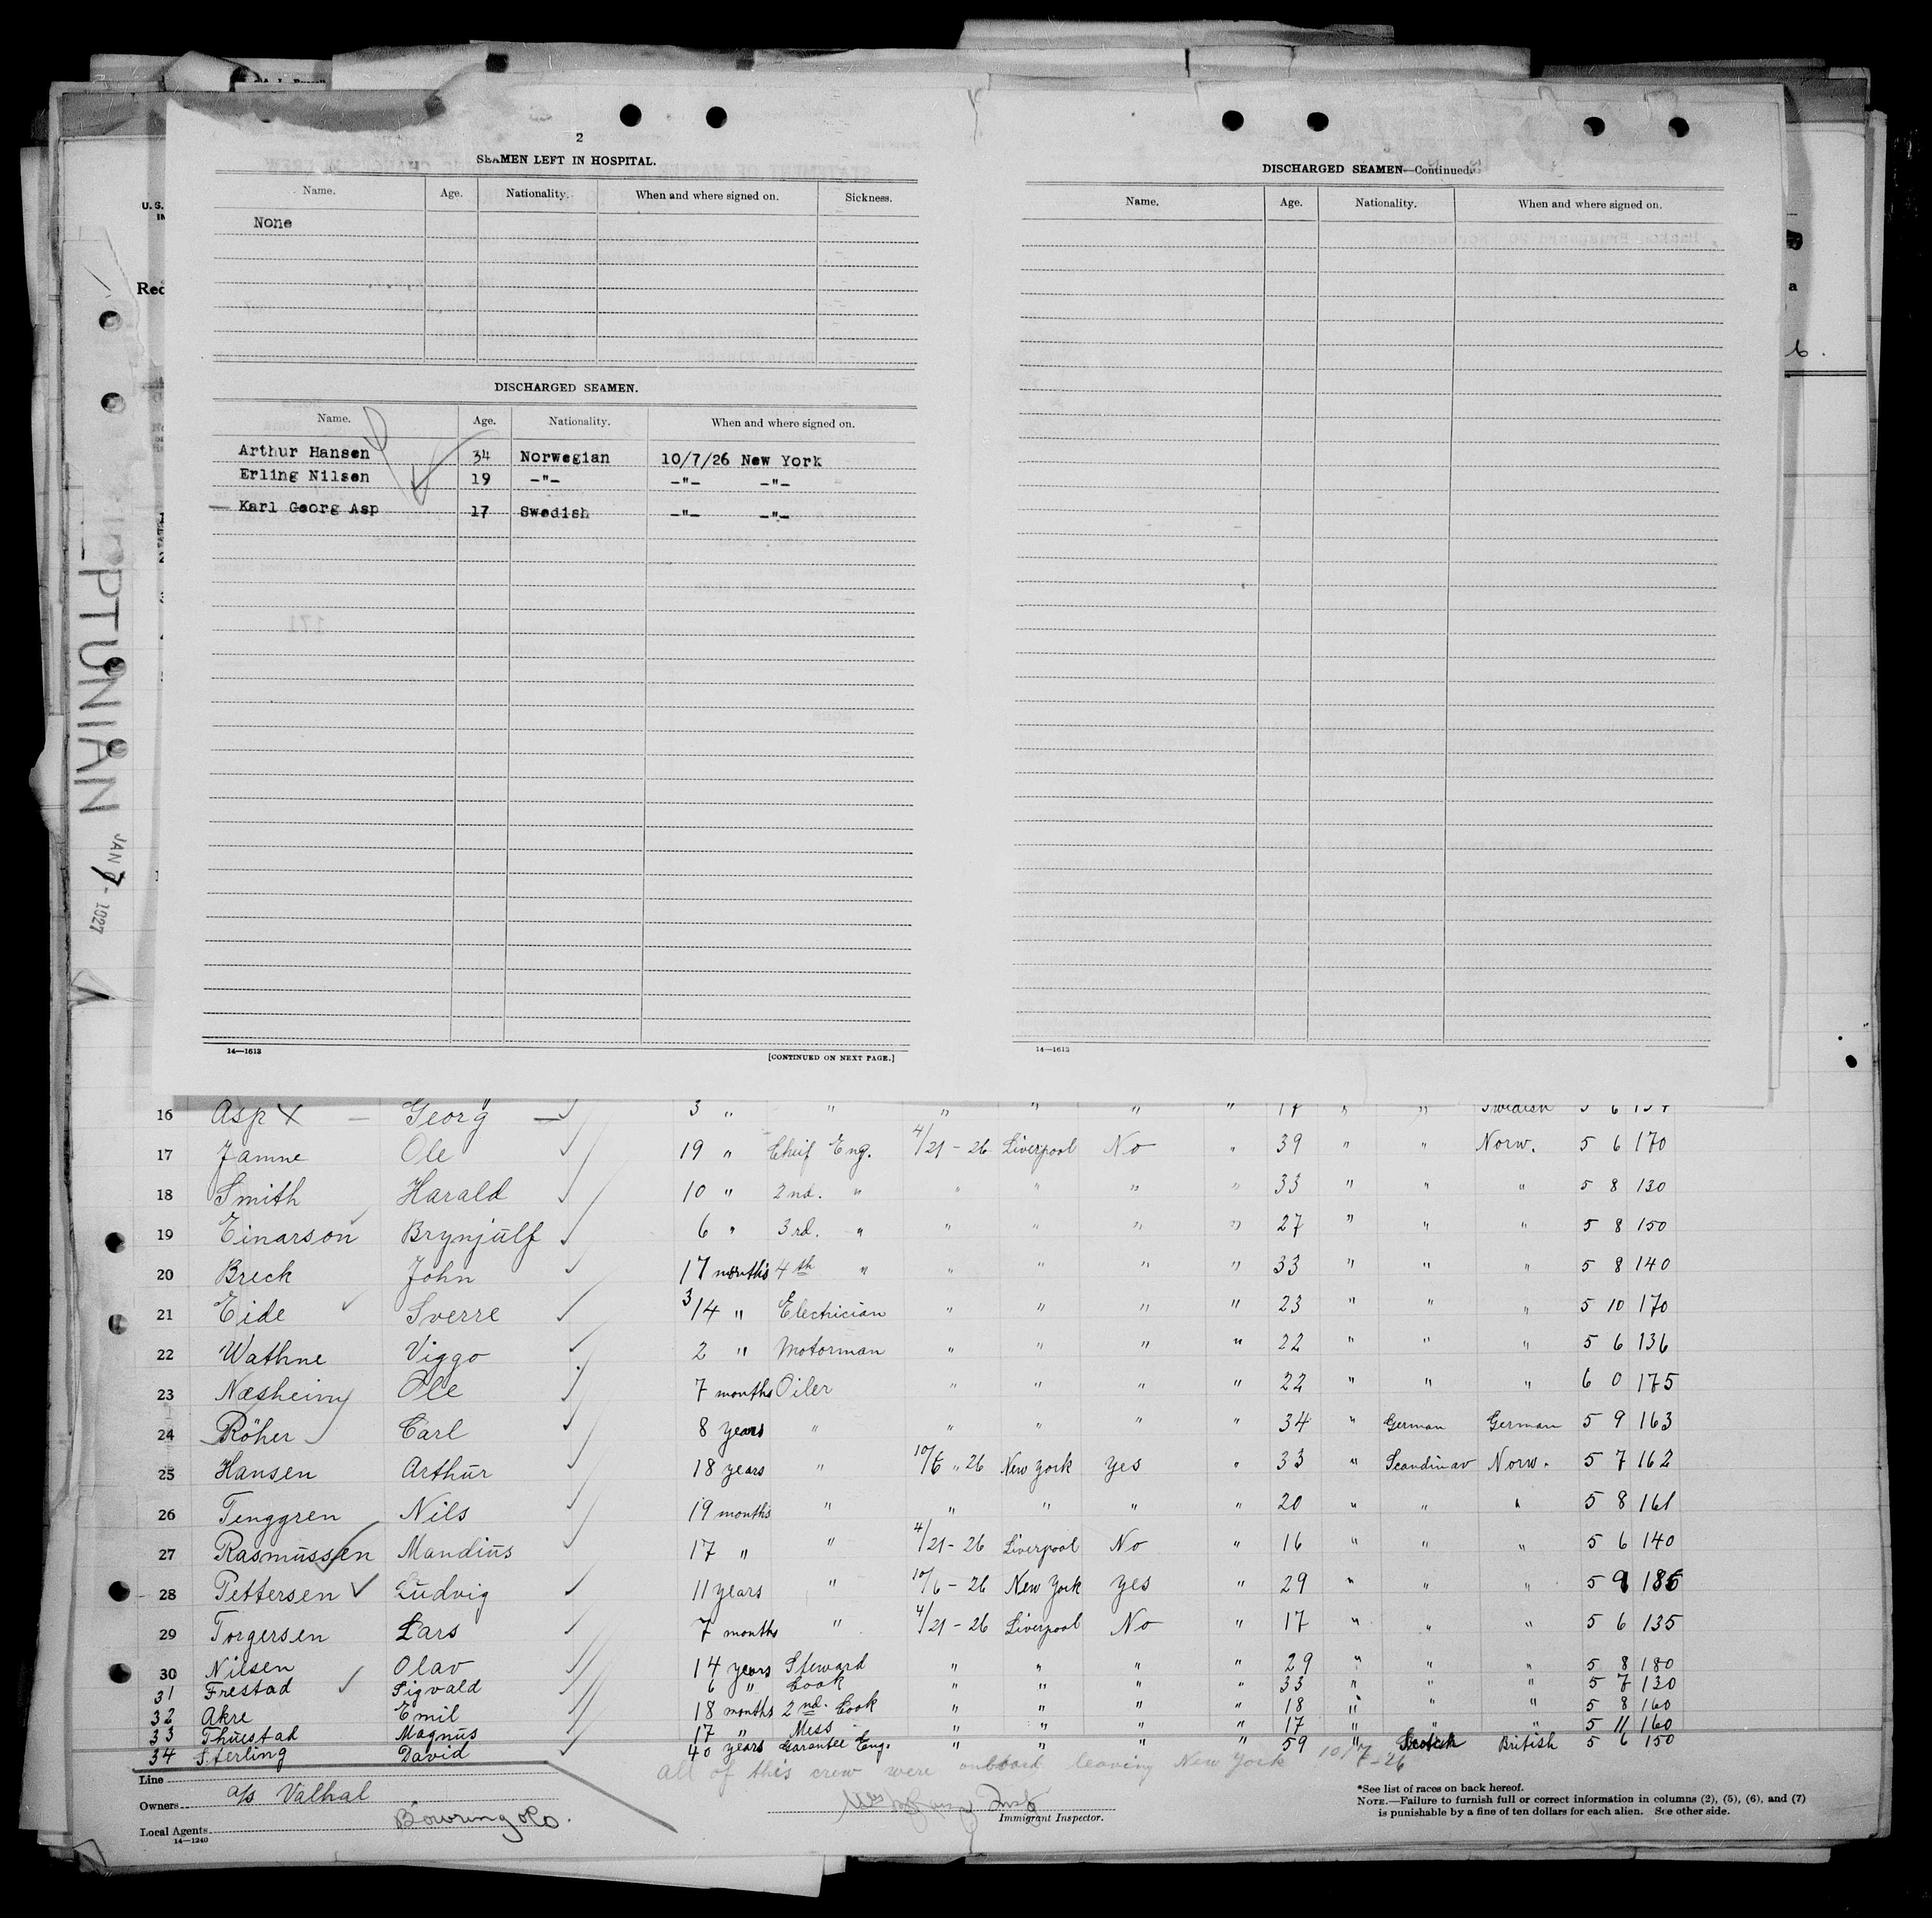 2
SEAMEN LEFT IN HOSPITAL.
Name. Age. Nationality. When and where signed on. Sickness.
None
DISCHARGED SEAMEN.
Name. Age. Nationality. When and where signed on.
Arthur Hansen 34 Norwegian 10/7/26 New York
Erling Nilsen 19 -"- -"- -"-
Karl Georg Asp 17 Swedish -"- -"-
14—1613
[CONTINUED ON NEXT PAGE.]
DISCHARGED SEAMEN—Continued.
Name. Age. Nationality. When and where signed on.
14—1613
U.S.
Rec
a
PTUNIAN
JAN 7 - 1927
16 Asp X — Georg — 3 " " " " " " 17 " " Swedish 5 6 154
17 Jamne Ole 19 " Chif Eng. 4/21 - 26 Liverpool No " 39 " " Norw. 5 6 170
18 Smith Harald 10 " 2nd. " " " " " 33 " " " 5 8 130
19 Einarson Brynjulf 6 " 3rd. " " " " " 27 " " " 5 8 150
20 Breck John 17 months 4th " " " " " 33 " " " 5 8 140
21 Eide Sverre 3/4 " Electrician " " " " 23 " " " 5 10 170
22 Wathne Viggo 2 " Motorman " " " " 22 " " " 5 6 136
23 Næsheim Ole 7 months Oiler " " " " 22 " " " 6 0 175
24 Röher Carl 8 years " " " " " 34 " German German 5 9 163
25 Hansen Arthur 18 years " 10/6 " 26 New York yes " 33 " Scandinav Norw. 5 7 162
26 Tenggren Nils 19 months " " " " " 20 " " " 5 8 161
27 Rasmussen Mandius 17 " " 4/21 - 26 Liverpool No " 16 " " " 5 6 140
28 Pettersen Ludvig 11 years " 10/6 - 26 New York yes " 29 " " " 5 9 186
29 Torgersen Lars 7 months " 4/21 - 26 Liverpool No " 17 " " " 5 6 135
30 Nilsen Olav 14 years Steward " " " " 29 " " " 5 8 180
31 Frestad Sigvald 6 " Cook " " " " 33 " " " 5 7 130
32 Akre Emil 18 months 2nd. Cook " " " " 18 " " " 5 8 160
33 Thuestad Magnus 17 " Mess " " " " 17 " " " 5 11 160
34 Sterling David 40 years Garantee Eng. " " " " 59 " Scotch British 5 6 150
all of this crew were onboard leaving New York 10/7-26
Line
Owners a/s Valhal
Local Agents Bowring & Co.
14—1240
Immigrant Inspector.
*See list of races on back hereof.
NOTE.—Failure to furnish full or correct information in columns (2), (5), (6), and (7)
is punishable by a fine of ten dollars for each alien. See other side.